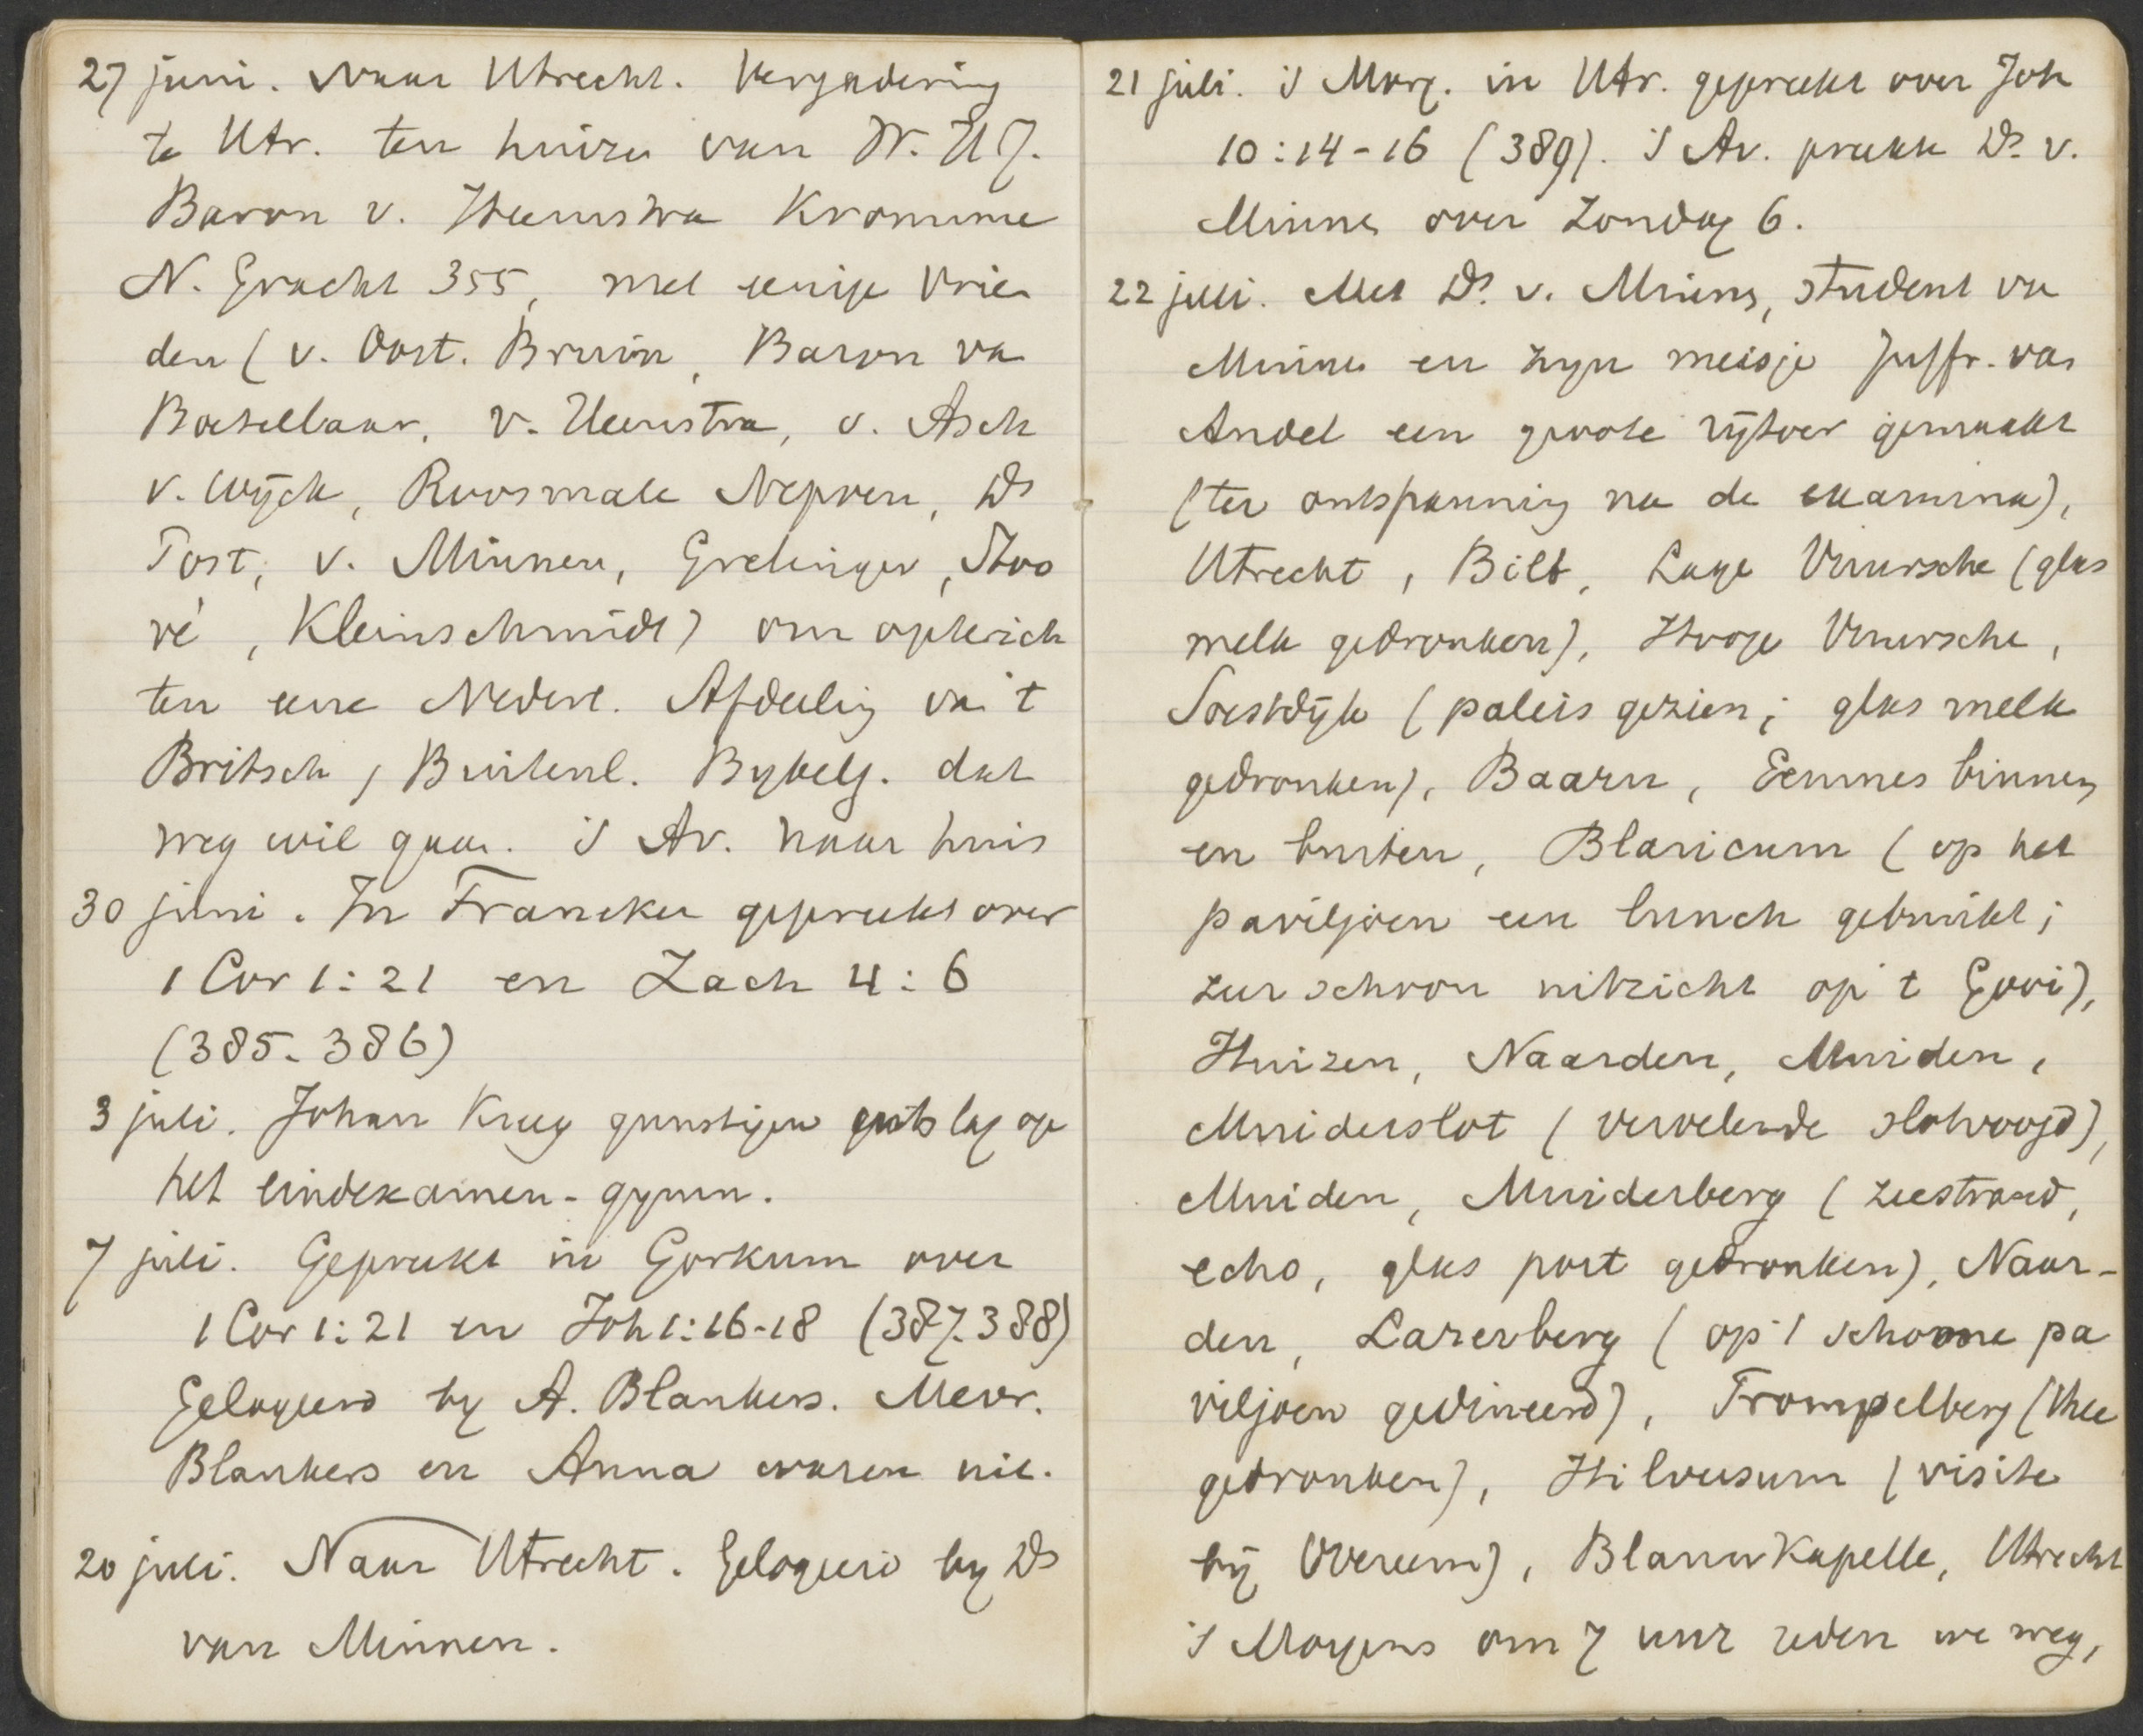 27 juni. Naar Utrecht. Vergadering
te Utr. ten huize van W. H. J.
Baron v. Heemstra Kromme
N. Gracht 355, met eenige vrien
den (v. Oost. Bruin, Baron va
Boetzelaar, v. Heemstra, v. Asch
v. Wijck, Roosmale Nepveu, Ds
Post, v. Minnen, Grelinger, Hoo
ré, Kleinschmidt) om opterich
ten eene Nederl. Afdeeling van 't
Britsch, Buitenl. Bybelg. dat
weg wil gaan. 's Av. naar huis
30 juni. In Franeker gepreekt over
1 Cor 1:21 en Zach 4:6
(385-386)
3 juli. Johan Krug gunstigen uitslag op
het eindexamen-gymn.
7 juli. Gepreekt in Gorkum over
1 Cor 1:21 en Joh 1:16-18 (387-388)
Gelogeerd by A. Blankers. Mevr.
Blankers en Anna waren uit.
20 juli. Naar Utrecht. Gelogeerd by Ds
van Minnen.
21 juli. 's Morg. in Utr. gepreekt over Joh
10:14-16 (389). 's Av. preekte Ds. v.
Minnen over Zondag 6.
22 juli. Met Ds. v. Minnen, student van
Minnen en zyn meisje Juffr. van
Andel een groote rijtoer gemaakt
(ter ontspanning na de examina),
Utrecht, Bilt, Lage Vuursche (glas
melk gedronken), Hooge Vuursche,
Soestdijk (paleis gezien; glas melk
gedronken), Baarn, Eemnes binnen
en buiten, Blaricum (op het
paviljoen een lunch gebruikt;
zeer schoon uitzicht op 't Gooi),
Huizen, Naarden, Muiden,
Muiderslot (vervelende slotvoogd),
Muiden, Muiderberg (zeestrand,
echo, glas port gedronken), Naar-
den, Larenberg (op 't schoone pa
viljoen gedineerd), Trompelberg (thee
gedronken), Hilversum (visite
bij Overeem), Blauwkapelle, Utrecht
's Morgens om 7 uur reden we weg,